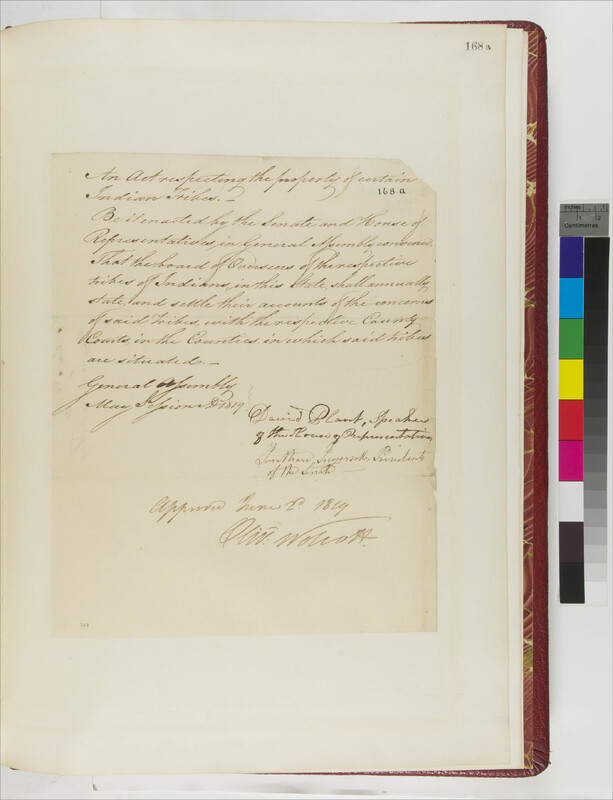 168a
An Act respecting the property of certain
Indian Tribes. —
168a
Be it enacted by the Senate and House of
Representatives, in General Assembly convened.
That the board of Overseers of the respective
tribes of Indians, in this State, shall annually
state, and settle their accounts of the concerns
of said Tribes, with the respective County
Courts, in the Counties, in which said tribes
are situated. —
General Assembly
May Session AD 1819
David Plant, Speaker
of the House of Representatives
Jonathan Ingersoll, President
of the Senate
Approved June 2d 1819
Oliv. Wolcott.
Inches
1
2
Centimetres